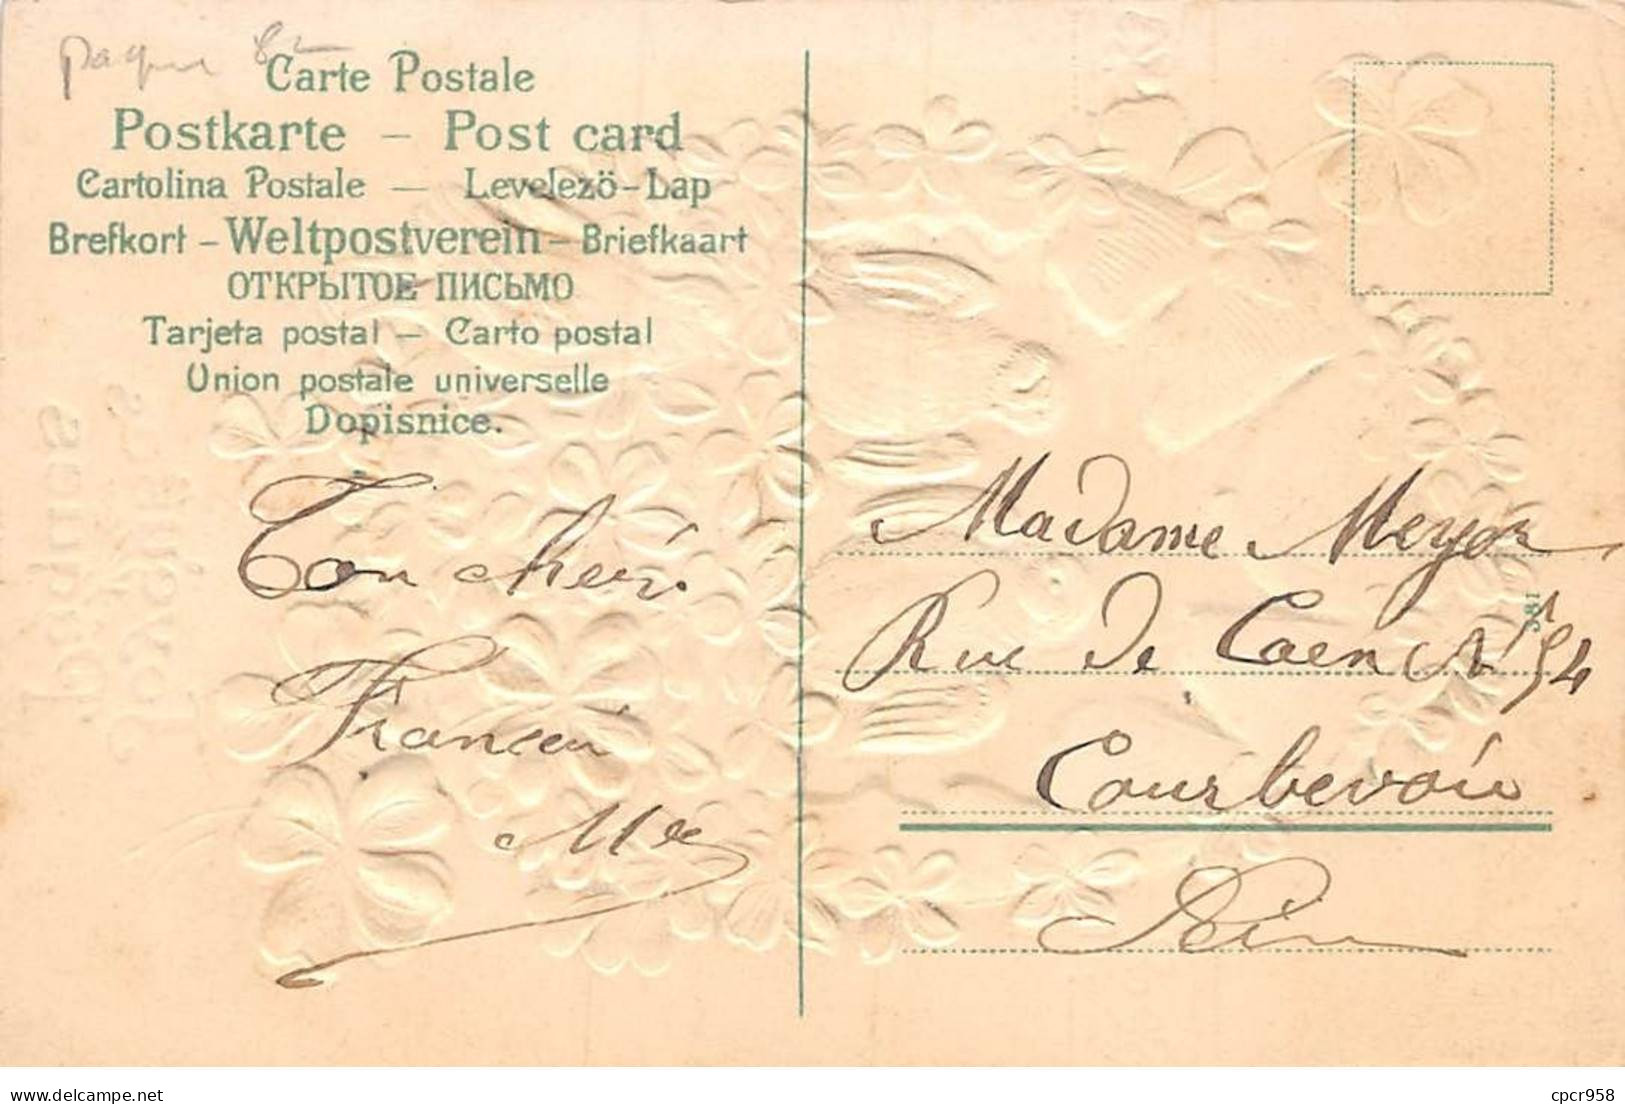 paques 8
Carte Postale
Postkarte – Post card
Cartolina Postale — Levelezö-Lap
Brefkort – Weltpostverein – Briefkaart
ОТКРЫТОЕ ПИСЬМО
Tarjeta postal — Carto postal
Union postale universelle
Dopisnice.
Ton chéri.
Francis
Madame Meyer
381
Rue de Caen N° 54
Courbevoie
Seine
Joyeuses
Paques
cpcr958